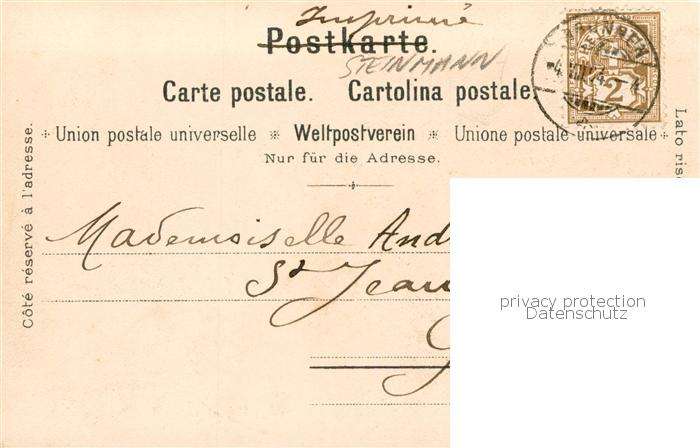 Imprimé
Postkarte.
STEINMANN
Carte postale. Cartolina postale.
Union postale universelle Weltpostverein Unione postale universale
Nur für die Adresse.
Côté réservé à l'adresse.
Lato rise
2
Mademoiselle And
St Jean
privacy protection
Datenschutz